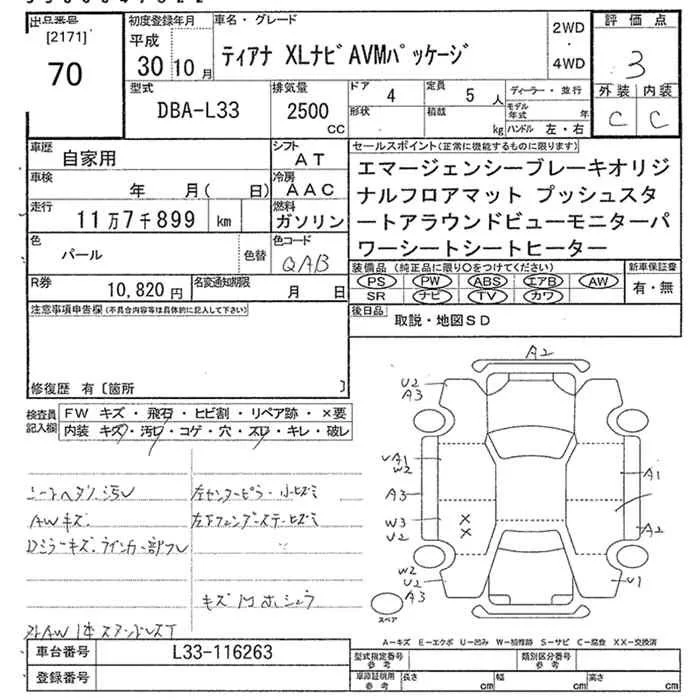 出品番号
[2171]
70
初度登録年月
平成
30 10 月
車名・グレード
ティアナ XLナビAVMパッケージ
2WD
・
4WD
評価点
3
外装 内装
C C
型式
DBA-L33
排気量
2500
CC
ドア
4
定員
5 人
形状
積載
kg
ディーラー・並行
モデル年式 年
ハンドル 左・右
車歴
自家用
シフト
AT
車検
年 月( 日)
冷房
AAC
走行
11万7千899 km
燃料
ガソリン
色
パール
色替
色コード
QAB
R券
10,820 円
名変通知期限
月 日
セールスポイント(正常に機能するものに限ります)
エマージェンシーブレーキオリジ
ナルフロアマット プッシュスタ
ートアラウンドビューモニターパ
ワーシートシートヒーター
装備品 (純正品に限り○をつけてください)
PS PW ABS エアB AW
SR ナビ TV カワ
新車保証書
有・無
後日品
取説・地図SD
注意事項申告欄(不具合内容等は具体的に記入して下さい)
修復歴 有〔箇所 〕
検査員
記入欄
FW キズ・飛石・ヒビ割・リペア跡・×要
内装 キズ・汚レ・コゲ・穴・スレ・キレ・破レ
AWキズ
左センターピラー小ヒズミ
A2
U2
A3
UA1
W2
A3
W3
U2
X
X
W2
U2
A3
A1
A2
U1
スペア
A-キズ E-エクボ U-凹み W-補修跡 S-サビ C-腐食 XX-交換済
車台番号
L33-116263
登録番号
型式指定番号
参考
類別区分番号
参考
車庫証明用
参考
長さ cm
幅 cm
高さ cm